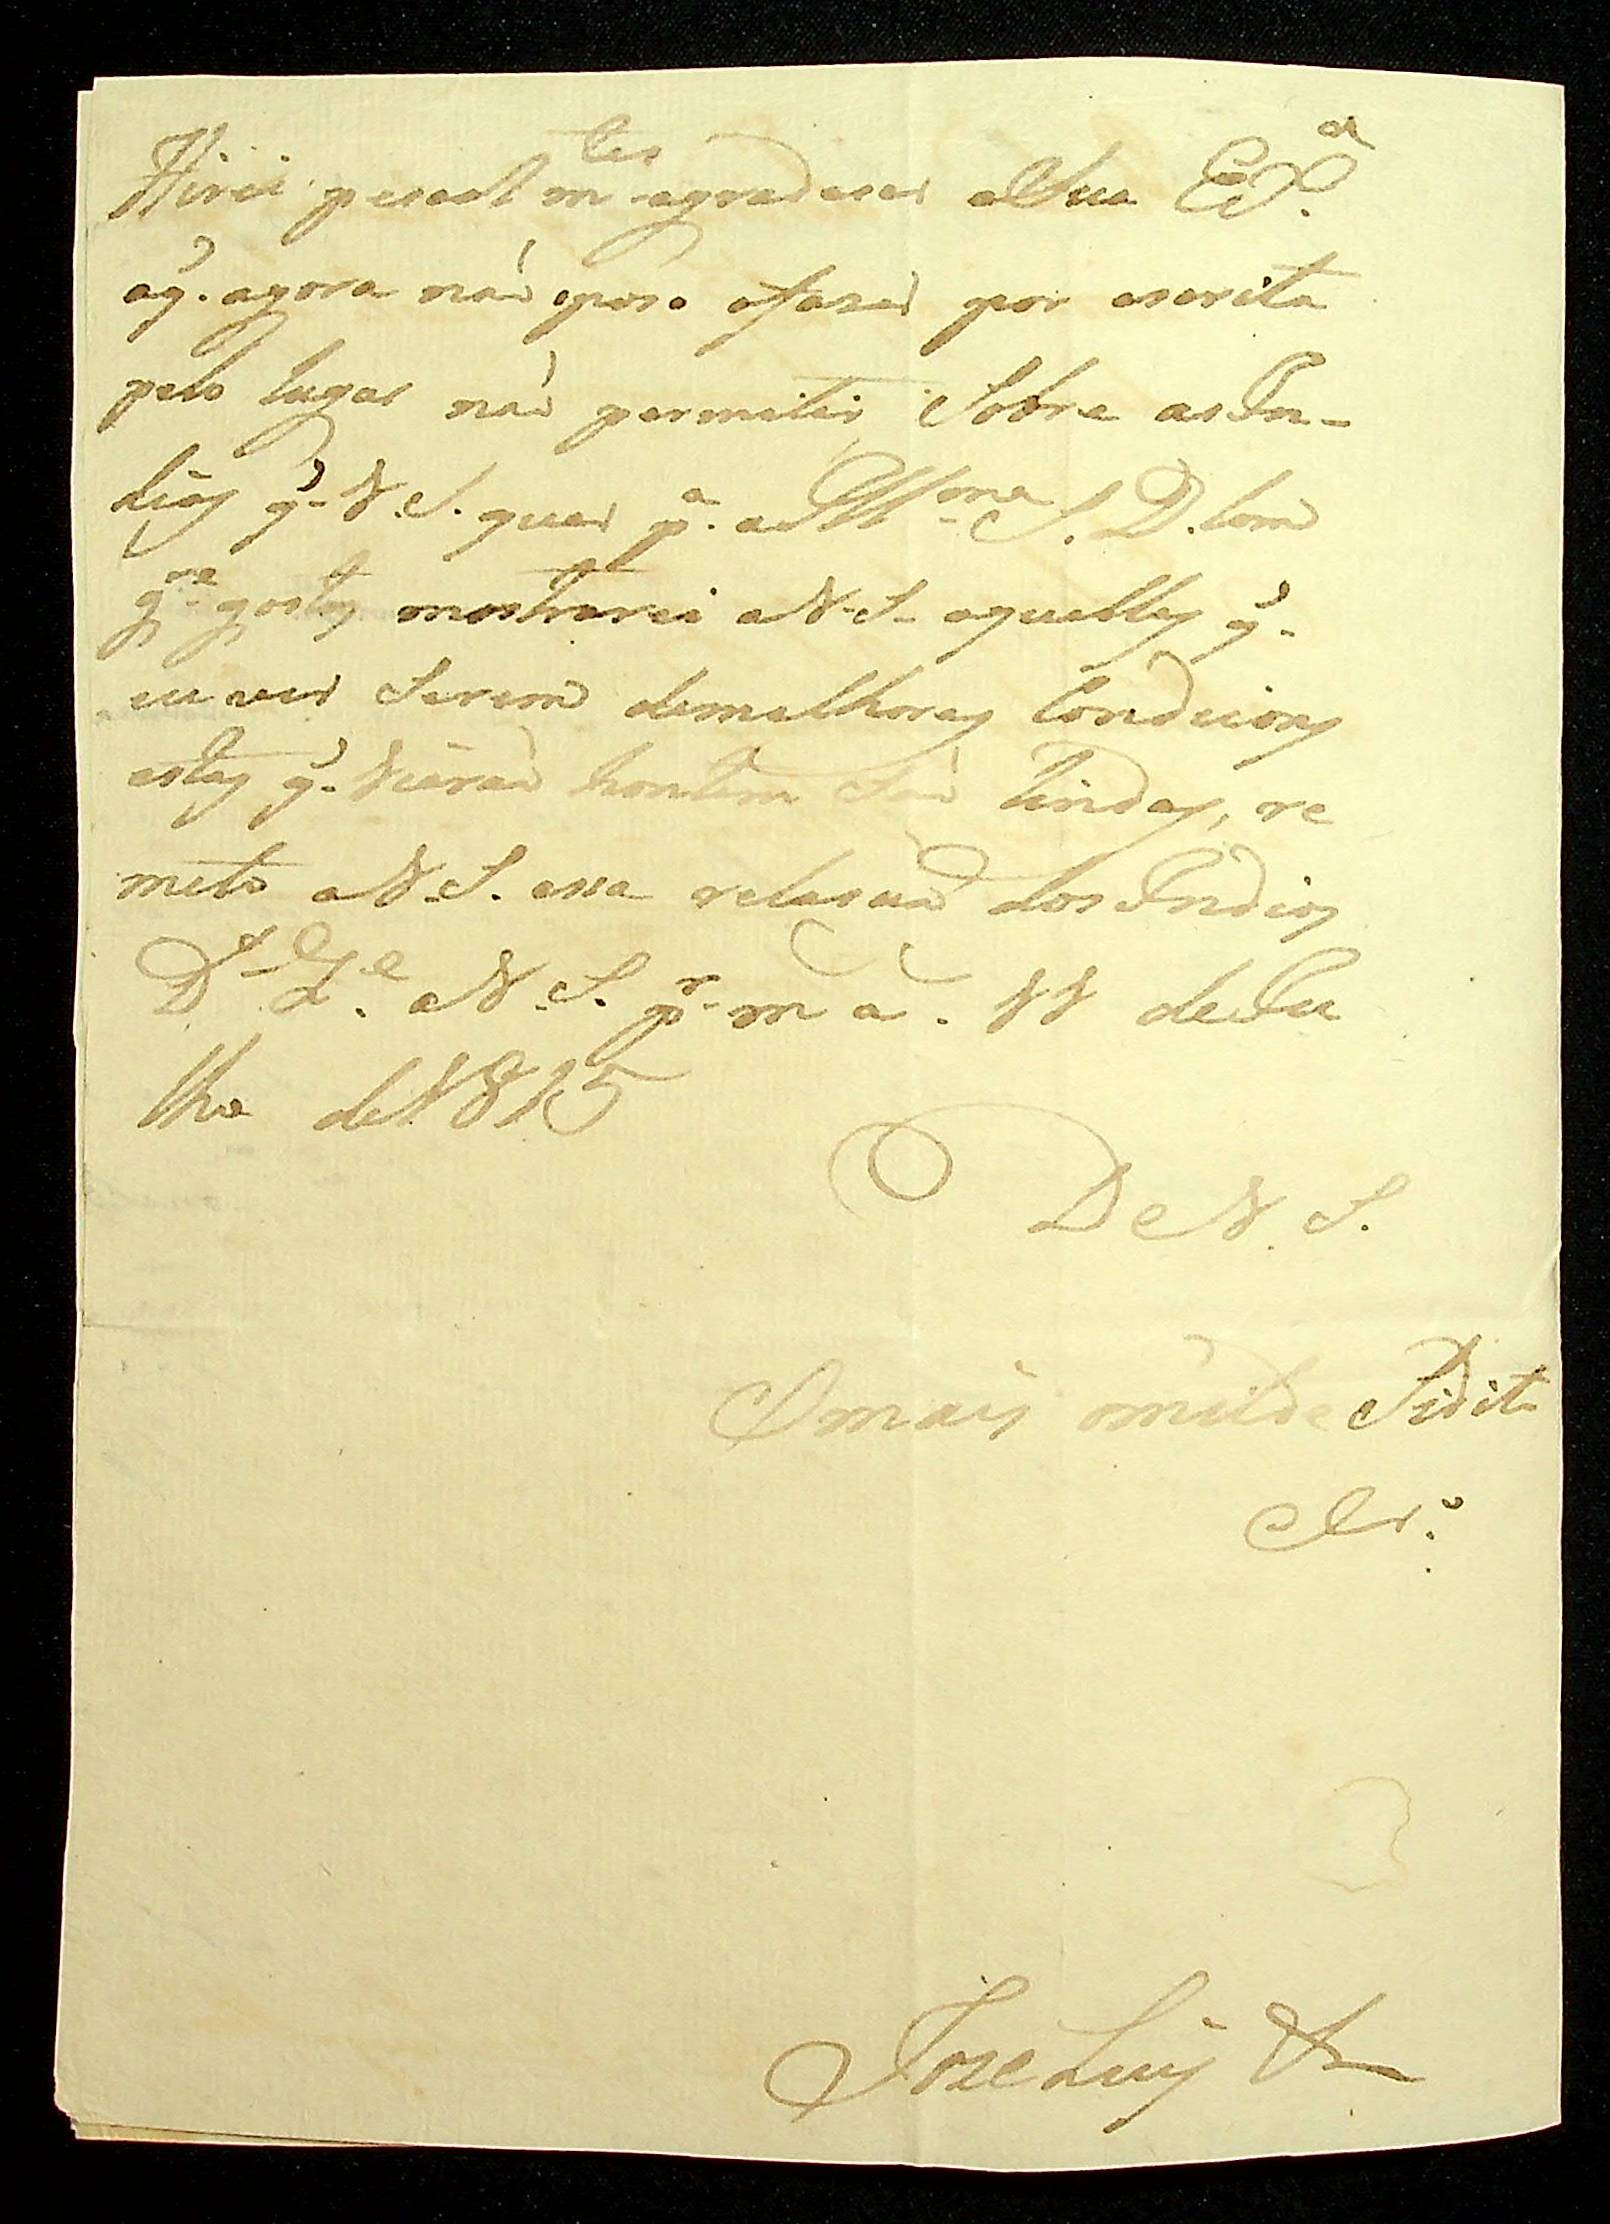 Hirei pesoalmtes agradeser a Sua Exª.
aq̃. agora naõ poso ofazer por escrita
pelo lugar naõ permitir Sobre as In-
dias q̃. V.S. quer pª. a Illmª S. D. Com
qe gostos mostrarei a V.S. aquellas q̃.
eu ver Serem demelhores Condicioñs
estas q̃. Vieraõ hontem Saõ Lindas, re
meto a V.S. essa relasaõ dos Indios
Ds Ge. a V.S. pr. m a. 11 de Ju
lho de 1815
De V. S.
O mais omilde Sidito
Crº.
Joze Luis